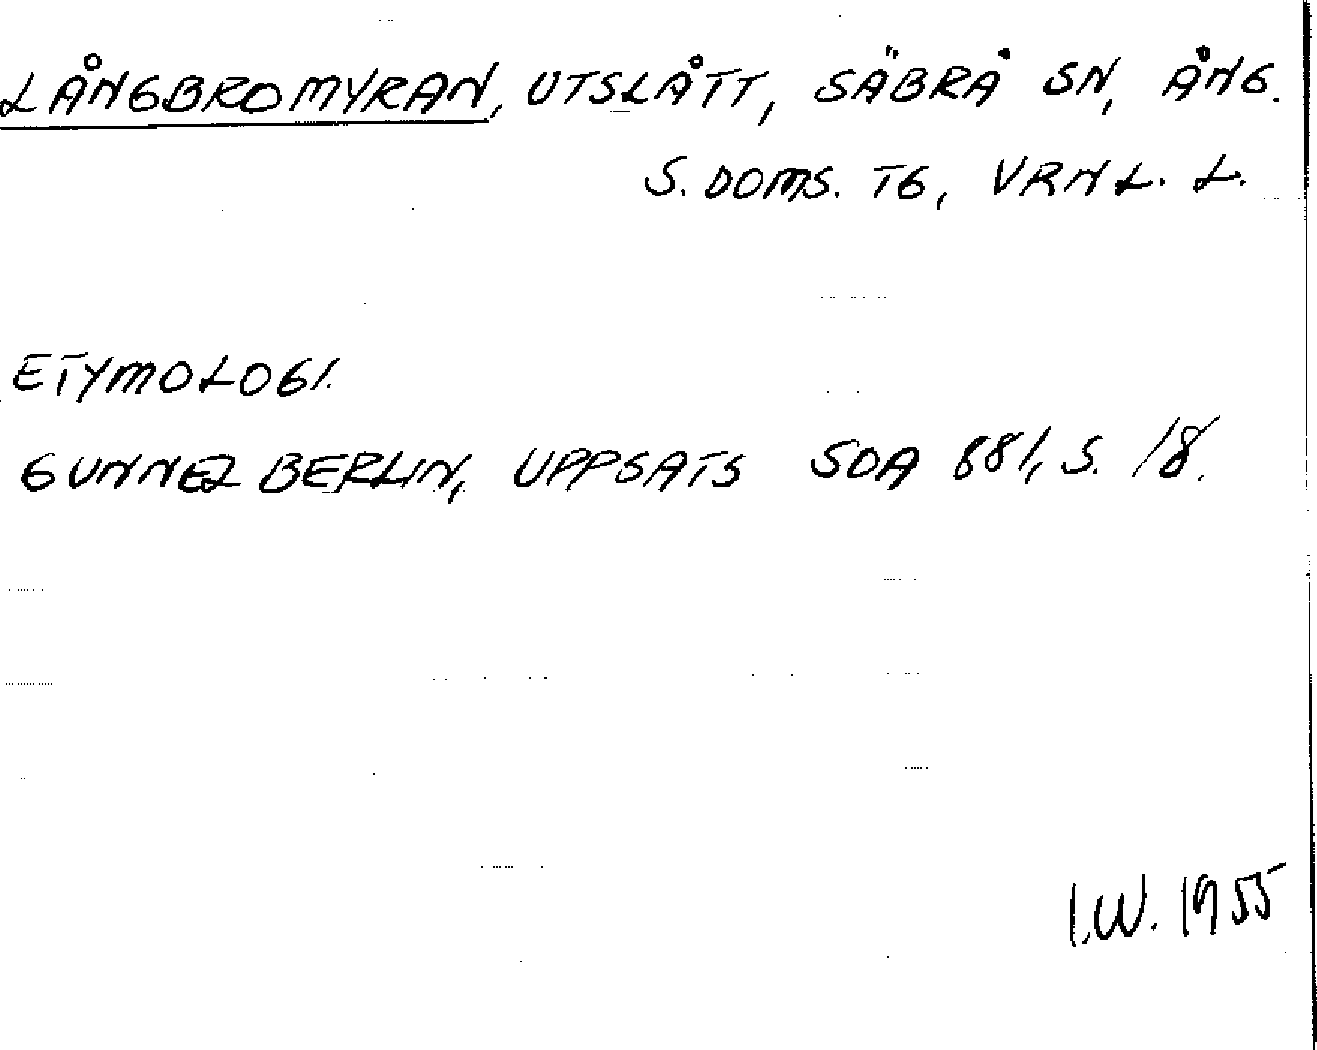 LÅNGBROMYRAN, UTSLÅTT, SÄBRÅ SN, ÅNG.
S. DOMS. TG, VRNL. L.
ETYMOLOGI.
GUNNEL BERLIN, UPPSATS SOA 881, S. 18.
I.W. 1955